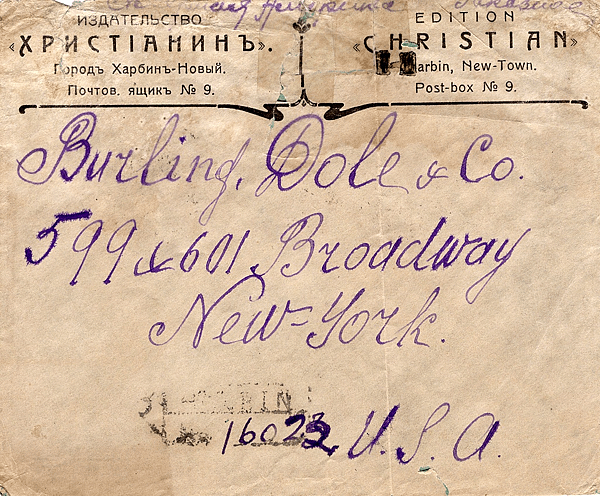 ИЗДАТЕЛЬСТВО
«ХРИСТIАНИНЪ».
Городъ Харбинъ-Новый.
Почтов. ящикъ № 9.
EDITION
«CHRISTIAN»
arbin, New-Town.
Post-box № 9.
Burling, Dole & Co.
599 & 601 Broadway
New=York.
16023 U. S. A.